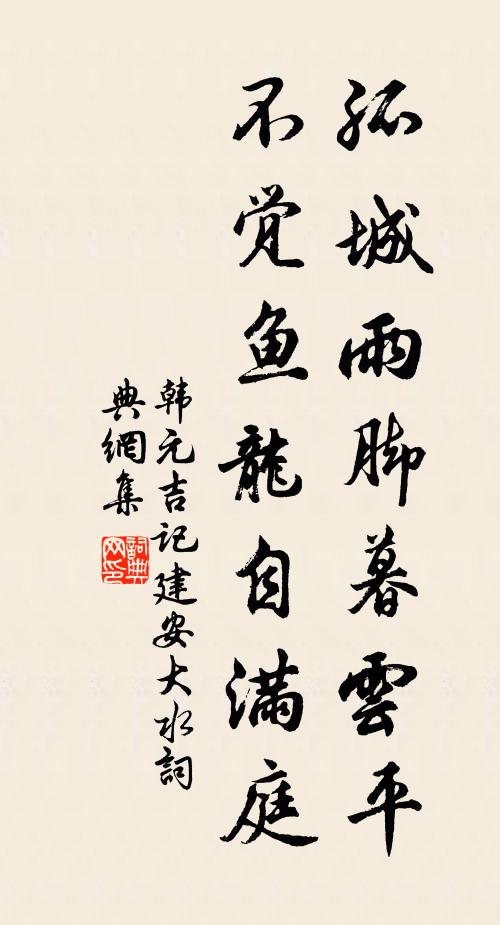 孤城雨脚暮雲平
不觉鱼龍自满庭
韩元吉记建安大水詞
典網集
詞典
网印